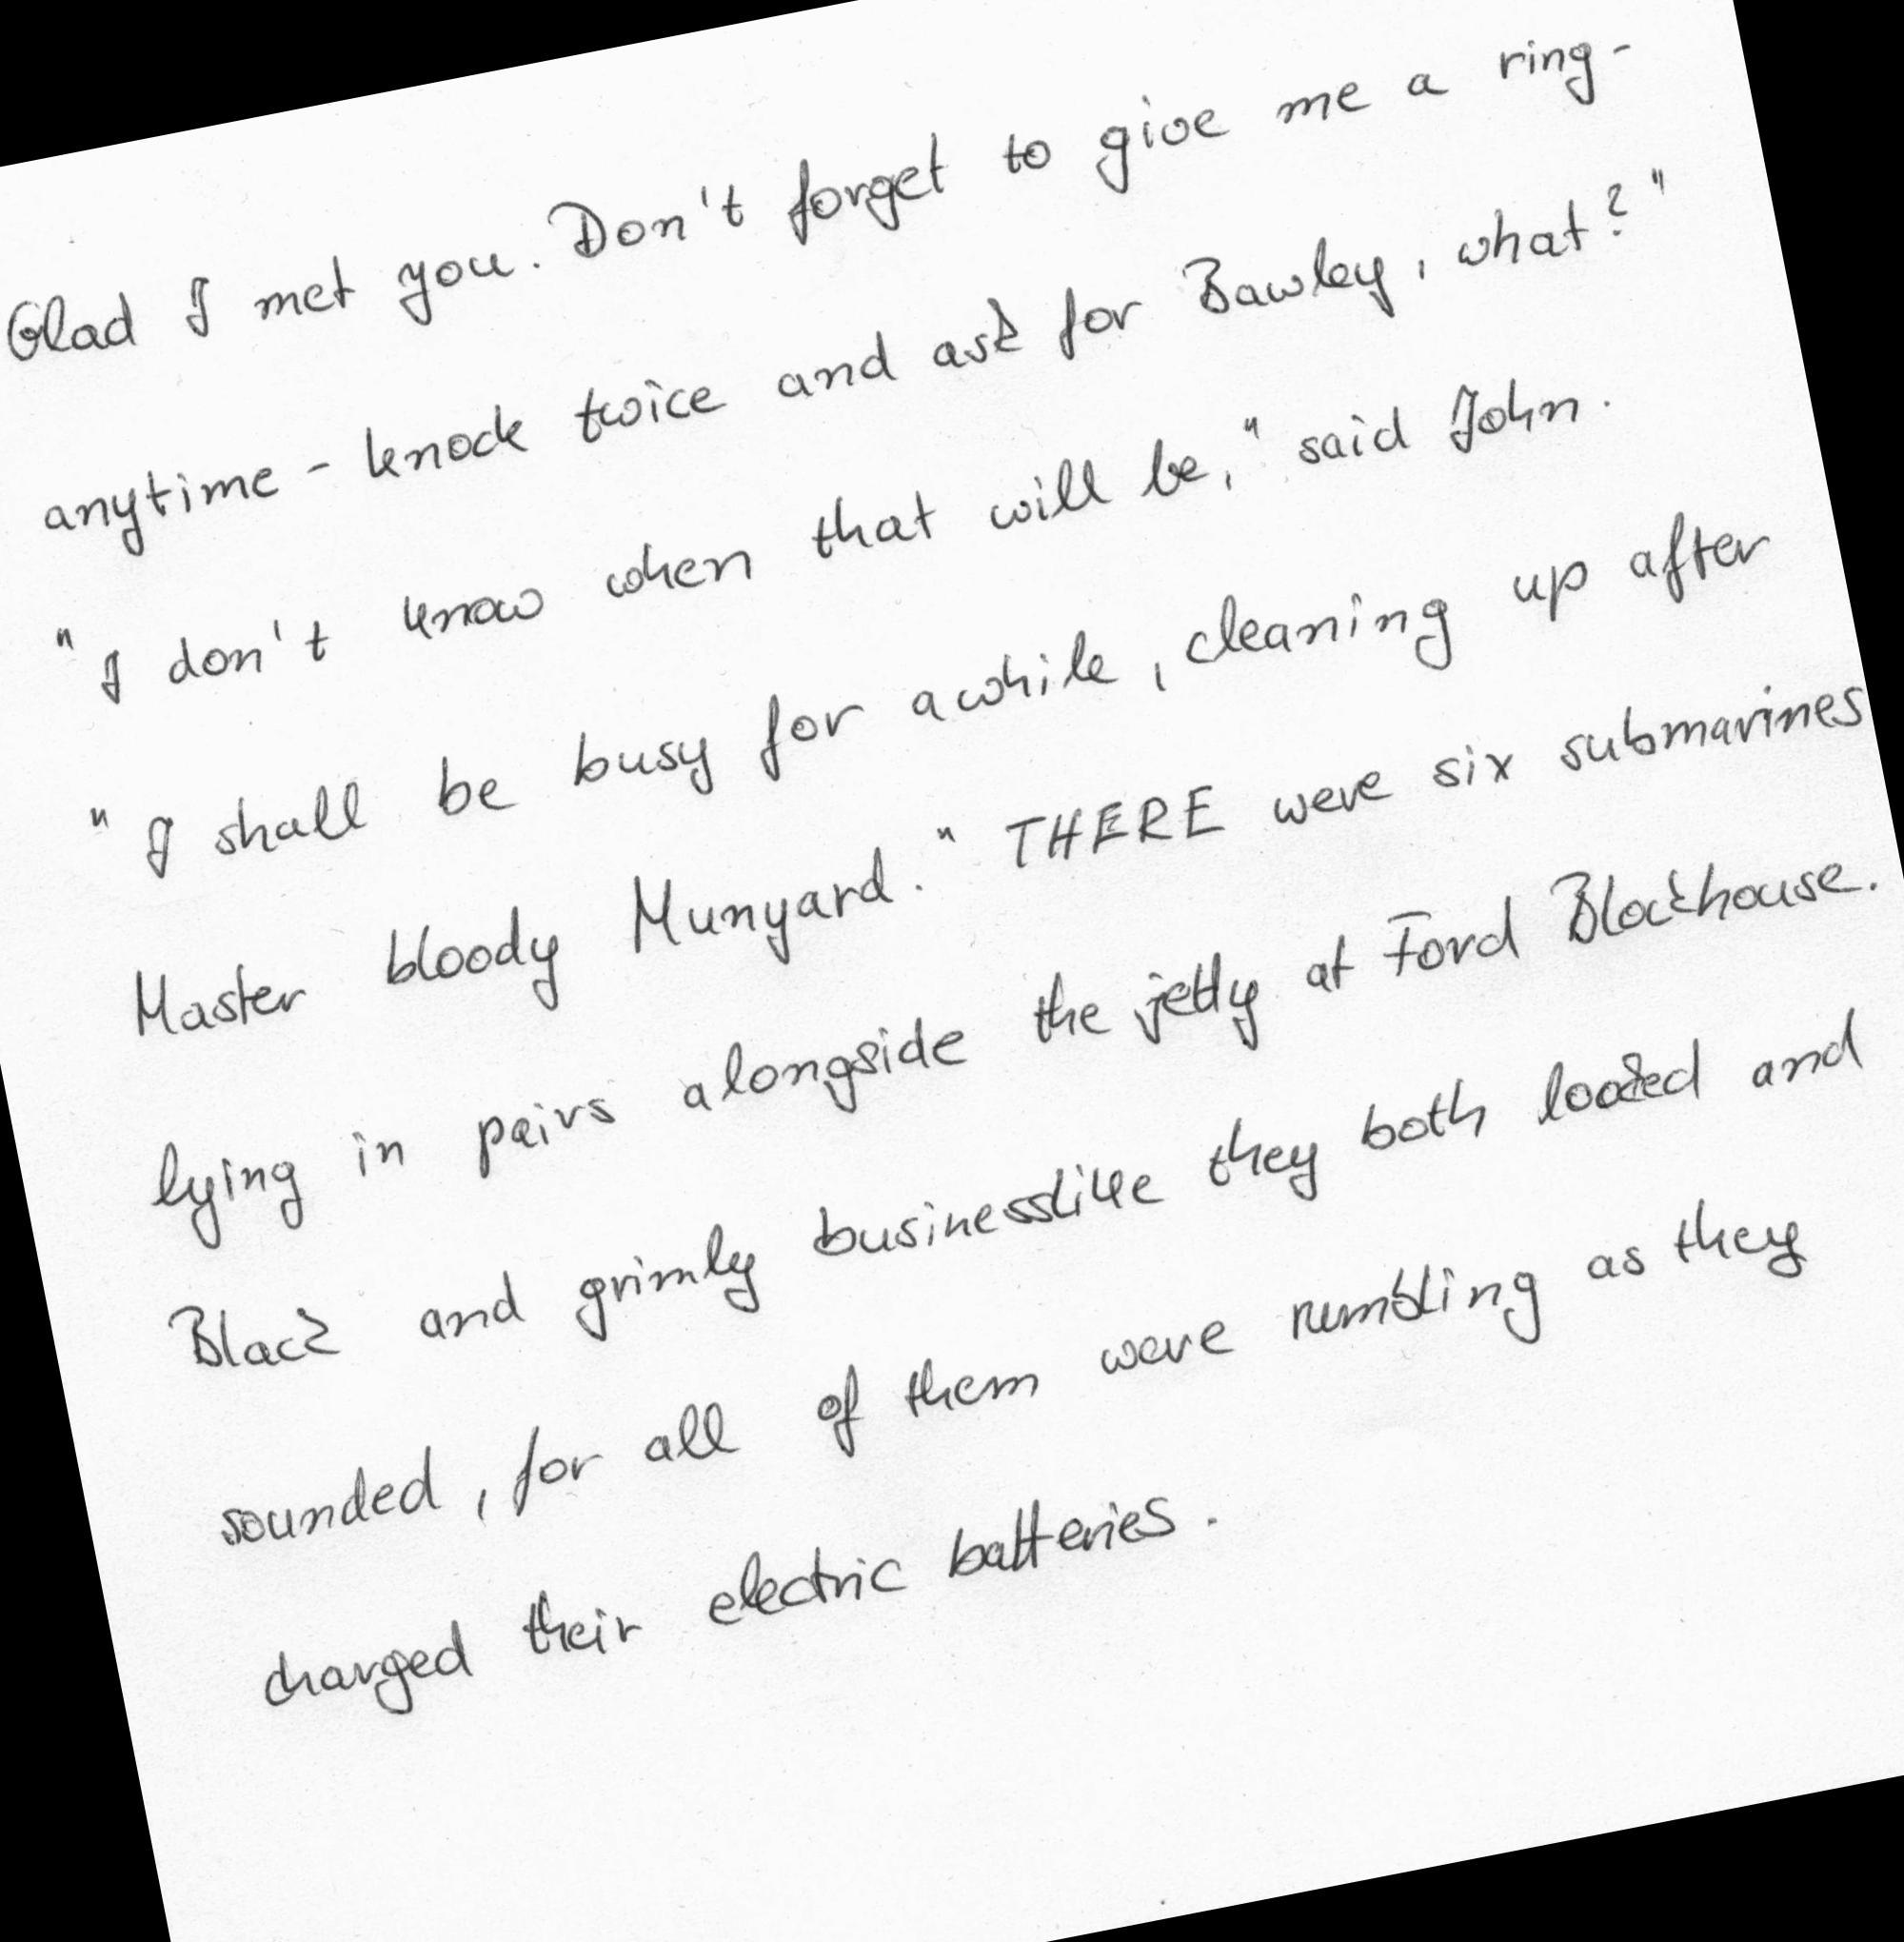 Glad I met you. Don't forget to give me a ring -
anytime - knock twice and ask for Bawley, what?"
"I don't know when that will be," said John.
"I shall be busy for awhile, cleaning up after
Master bloody Munyard." THERE were six submarines
lying in pairs alongside the jetty at Ford Blockhouse.
Black and grimly businesslike they both looked and
sounded, for all of them were rumbling as they
charged their electric batteries.